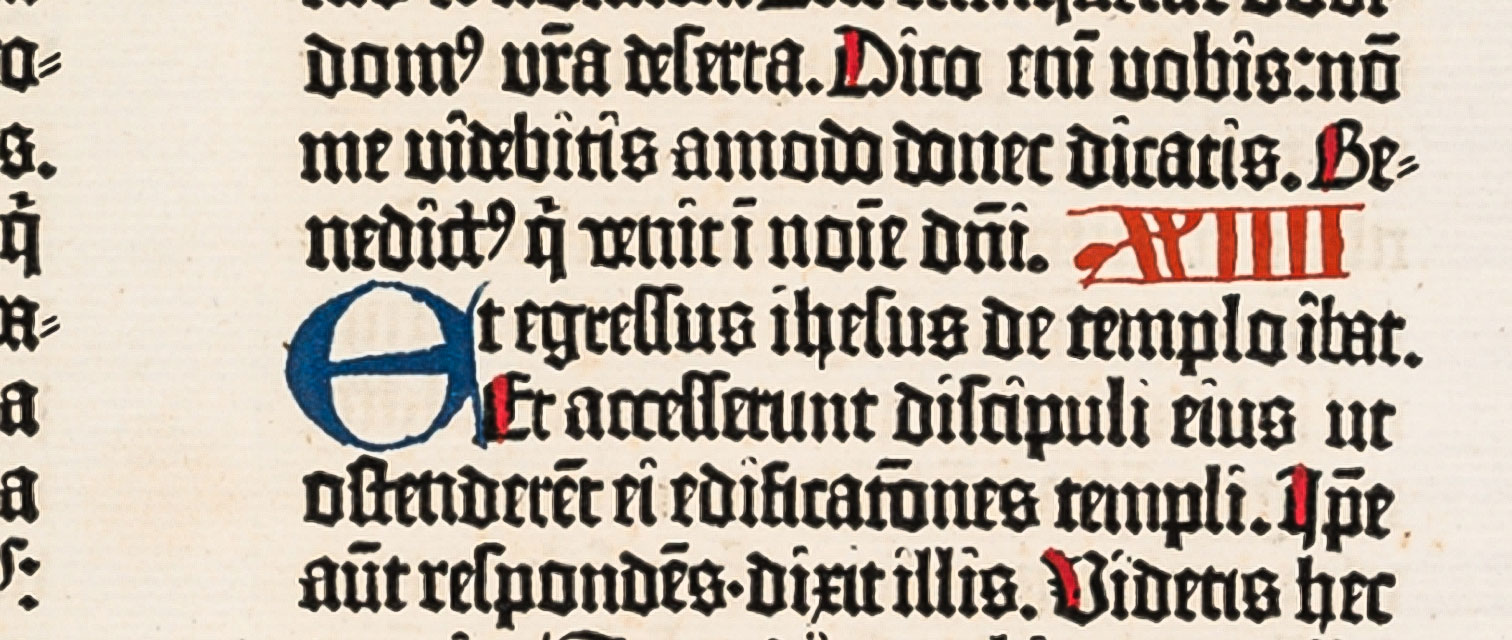 domꝰ vr̄a deserta. Dico eni᷑ī vobis: nō
me videbitis amodo donec dicatis. Be⸗
nedictꝰ q̇ venit ī noīe dn̄i. XXIIII
Et egressus ihesus de templo ibat.
Et accesserunt discipuli eius ut
ostenderēt ei edificatōnes templi. Ip̄e
aūt respondēs·dixit illis. Videtis hec